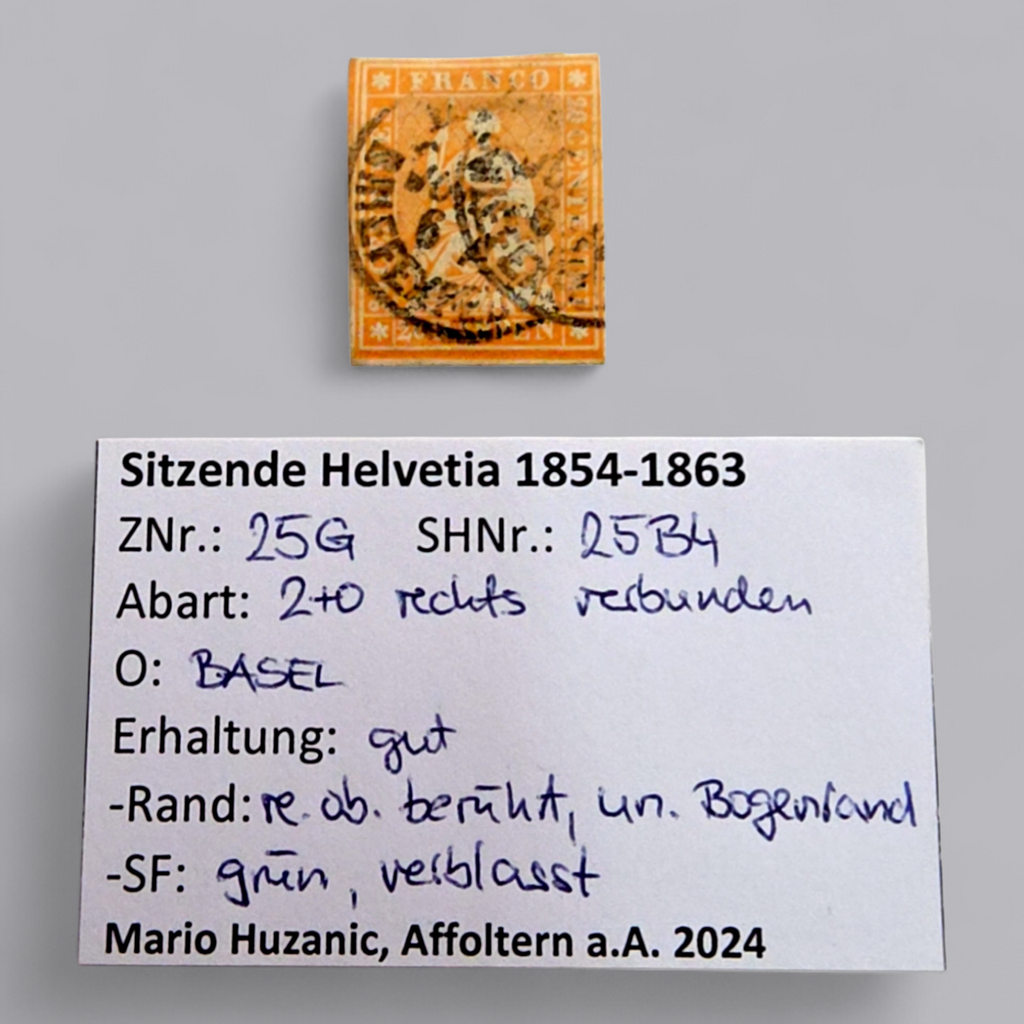 FRANCO
20 CENTESIMI
RAPPEN
Sitzende Helvetia 1854-1863
ZNr.: 25G SHNr.: 25B4
Abart: 2+0 rechts verbunden
O: BASEL
Erhaltung: gut
-Rand: re. ob. berührt, un. Bogenrand
-SF: grün, verblasst
Mario Huzanic, Affoltern a.A. 2024